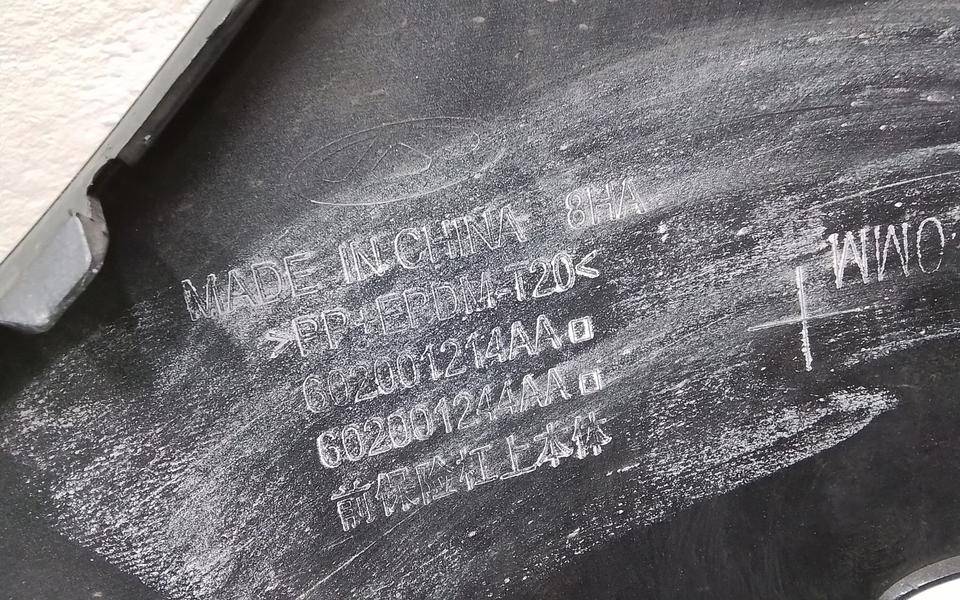 MADE IN CHINA 8HA
>PP+EPDM-T20<
602001214AA
602001244AA
前保险杠上本体